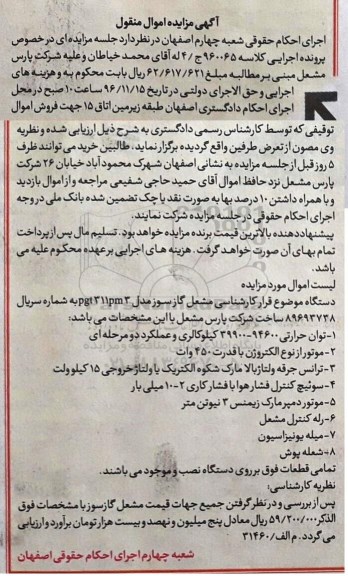 آگهی مزایده اموال منقول
اجرای احکام حقوقی شعبه چهارم اصفهان در نظر دارد جلسه مزایده ای در خصوص
پرونده اجرایی کلاسه ۹۶۰۰۶۵ ج/۴ له آقای محمد خیاطان و علیه شرکت پارس
مشعل مبنی بر مطالبه مبلغ ۶۲/۶۱۷/۶۲۱ ریال بابت محکوم به و هزینه های
اجرایی و حق الاجرای دولتی در تاریخ ۹۶/۱۱/۱۵ ساعت ۱۰ صبح در محل
اجرای احکام دادگستری اصفهان طبقه زیرزمین اتاق ۱۵ جهت فروش اموال
توقیفی که توسط کارشناس رسمی دادگستری به شرح ذیل ارزیابی شده و نظریه
وی مصون از تعرض طرفین واقع گردیده برگزار نماید. طالبین خرید می توانند ظرف
۵ روز قبل از جلسه مزایده به نشانی اصفهان شهرک محمودآباد خیابان ۲۶ شرکت
پارس مشعل نزد حافظ اموال آقای حمید حاجی شفیعی مراجعه و از اموال بازدید
و با همراه داشتن ۱۰ درصد بها به صورت نقد یا چک تضمین شده بانک ملی در وجه
اجرای احکام حقوقی در جلسه مزایده شرکت نمایند.
پیشنهاددهنده بالاترین قیمت برنده مزایده خواهد بود. تسلیم مال پس از پرداخت
تمام بهای آن صورت خواهد گرفت. هزینه های اجرایی بر عهده محکوم علیه می
باشد.
لیست اموال مورد مزایده
دستگاه موضوع قرار کارشناسی مشعل گاز سوز مدل pgt۳۱۱pm۳ به شماره سریال
۸۹۶۹۳۷۳۸ ساخت شرکت پارس مشعل با این مشخصات می باشد:
۱-توان حرارتی ۹۴۶۰۰-۳۹۹۰۰ کیلوکالری و عملکرد دو مرحله ای
۲-موتور از نوع الکتروژن با قدرت ۴۵۰ وات
۳-ترانس جرقه ولتاژ بالا مارک شکوه الکتریک با ولتاژ خروجی ۱۵ کیلو ولت
۴-سوئیچ کنترل فشار هوا با فشار کاری ۲-۱۰ میلی بار
۵-موتور دمپر مارک زیمنس ۳ نیوتن متر
۶-رله کنترل مشعل
۷-میله یونیزاسیون
۸-شعله پوش
تمامی قطعات فوق بر روی دستگاه نصب و موجود می باشند.
نظریه کارشناسی:
پس از بررسی و در نظر گرفتن جمیع جهات قیمت مشعل گاز سوز با مشخصات فوق
الذکر ۵۹/۲۰۰/۰۰۰ ریال معادل پنج میلیون و نهصد و بیست هزار تومان برآورد و ارزیابی
می گردد. م الف/۳۱۴۶۰
شعبه چهارم اجرای احکام حقوقی اصفهان